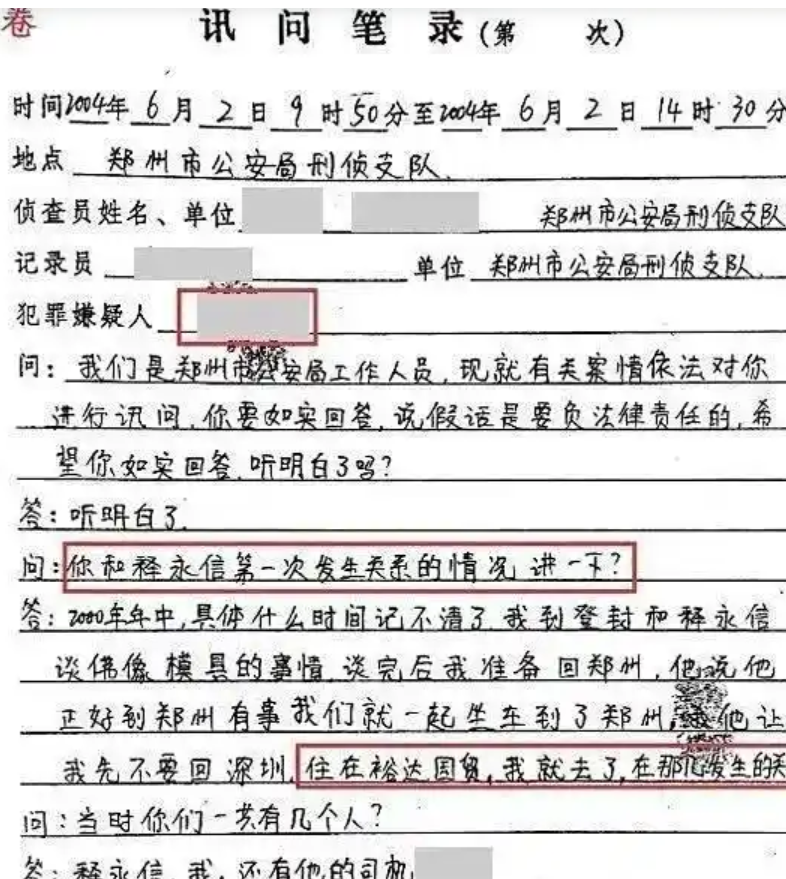 卷
讯 问 笔 录 (第 次)
时间2004年 6 月 2 日 9 时 50 分至 2004年 6 月 2 日 14 时 30 分
地点 郑州市公安局刑侦支队.
侦查员姓名、单位 郑州市公安局刑侦支队
记录员 单位 郑州市公安局刑侦支队.
犯罪嫌疑人
问: 我们是郑州市公安局工作人员,现就有关案情依法对你
进行讯问,你要如实回答,说假话是要负法律责任的,希
望你如实回答.听明白了吗?
答:听明白了.
问:你和释永信第一次发生关系的情况 讲一下?
答:2000年年中,具体什么时间记不清了.我到登封和释永信
谈佛像模具的事情.谈完后我准备回郑州,他说他
正好到郑州有事我们就一起坐车到了郑州,他让
我先不要回深圳,住在裕达国贸,我就去了,在那儿发生的关
问:当时你们一共有几个人?
答:释永信、我,还有他的司机